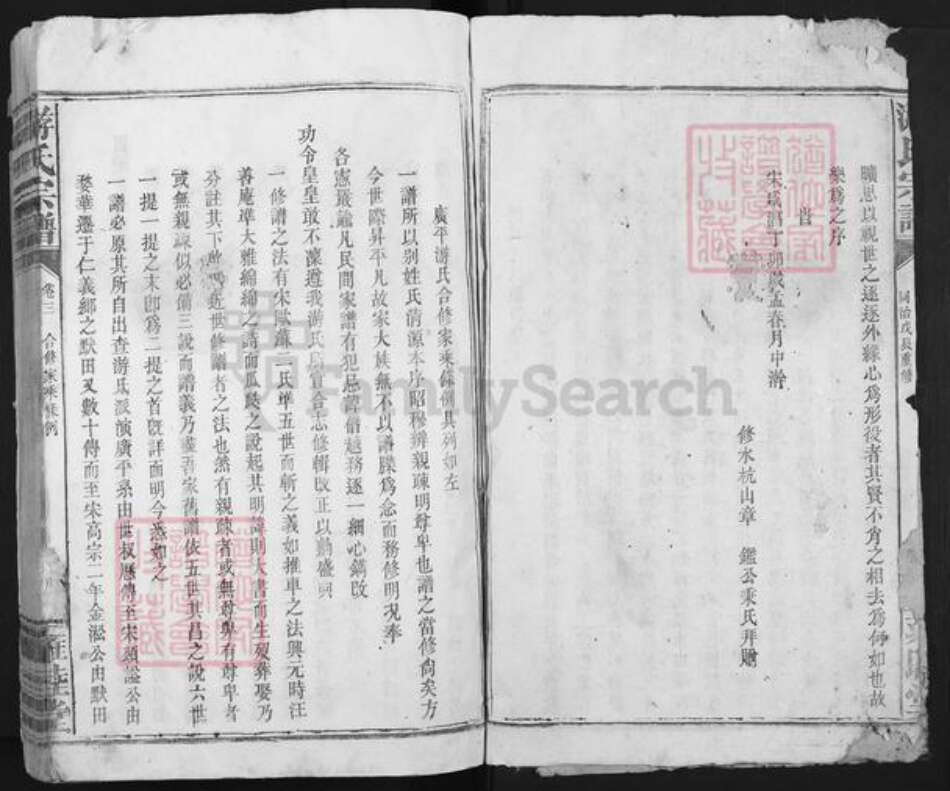 游氏宗譜
同治戊辰重修
曠思以視世之逐逐外緣心為形役者其賢不肖之相去為何如也故
樂為之序
旹
宋咸淳丁卯歲孟春月中澣
修水杭山章 鑑公秉氏拜贈
廣平游氏合修家乘條例具列如左
一譜所以別姓氏清源本序昭穆辨親疎明尊卑也譜之當修尚矣方
今世際昇平凡故家大族無不以譜牒為念而務修明况奉
各憲嚴飭凡民間家譜有犯忌諱僭越務逐一細心鏟改
功令皇皇敢不凜遵我游氏合志修輯改正以勷盛典
一修譜之法有宋歐蘇二氏準五世而斬之義如推車之法興元時汪
善庵準大雅綿綿之詩而瓜瓞之說起其明諱則大書而生殁葬娶乃
分註其下啟近世修譜者之法也然有親疎者或無尊卑有尊卑者
或無親疎似必備三說而譜義乃盡吾家舊譜依五世其昌之說六世
一提一提之末即為二提之首既詳而明今悉如之
一譜必原其所自出查游氏派演廣平系由世叔歷傳至宋須謚公由
婺華遷于仁義鄉之默田又數十傳而至宋高宗二年金淞公由默田
游氏宗譜
卷三 合修家乘條例
FamilySearch